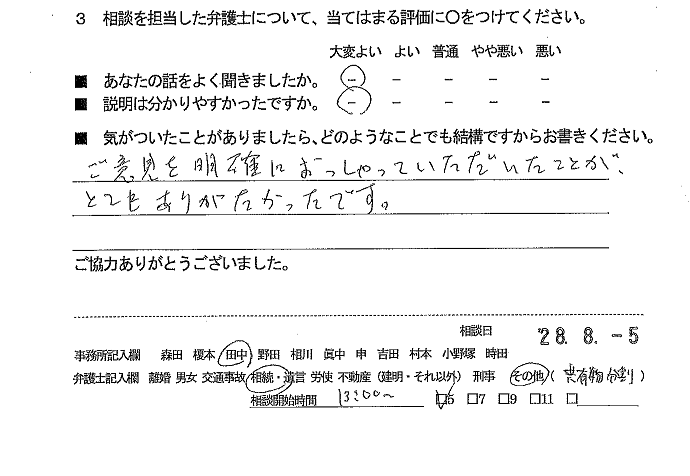 3 相談を担当した弁護士について、当てはまる評価に○をつけてください。
大変よい よい 普通 やや悪い 悪い
■ あなたの話をよく聞きましたか。 － － － － －
■ 説明は分かりやすかったですか。 － － － － －
■ 気がついたことがありましたら、どのようなことでも結構ですからお書きください。
ご意見を明確におっしゃっていただいたことが、
とてもありがたかったです。
ご協力ありがとうございました。
相談日 '28. 8. -5
事務所記入欄 森田 榎本 田中 野田 相川 眞中 申 吉田 村本 小野塚 時田
弁護士記入欄 離婚 男女 交通事故 相続・遺言 労使 不動産（建明・それ以外） 刑事 その他（共有物分割）
相談開始時間 13:00～ □5 □7 □9 □11 □